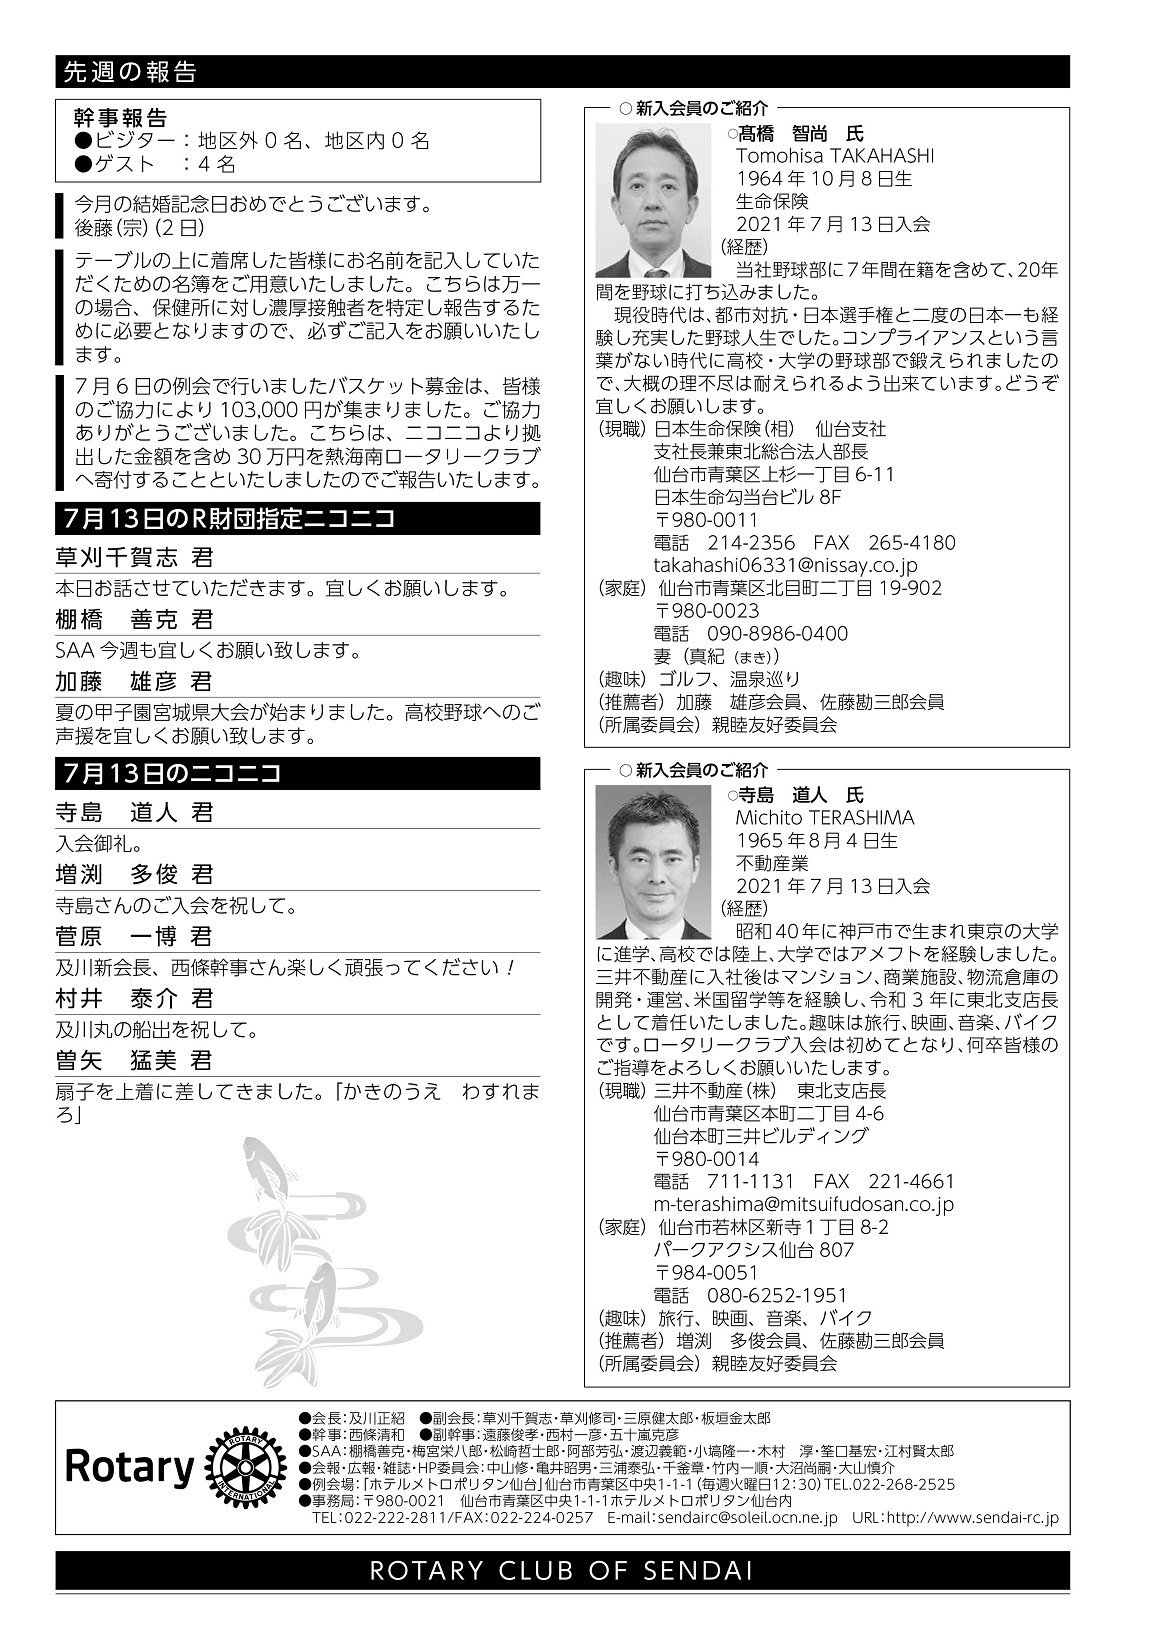 先週の報告
幹事報告
●ビジター：地区外 0 名、地区内 0 名
●ゲスト　：4 名
今月の結婚記念日おめでとうございます。
後藤(宗)(2 日)
テーブルの上に着席した皆様にお名前を記入していた
だくための名簿をご用意いたしました。こちらは万一
の場合、保健所に対し濃厚接触者を特定し報告するた
めに必要となりますので、必ずご記入をお願いいたし
ます。
7 月 6 日の例会で行いましたバスケット募金は、皆様
のご協力により 103,000 円が集まりました。ご協力
ありがとうございました。こちらは、ニコニコより拠
出した金額を含め 30 万円を熱海南ロータリークラブ
へ寄付することといたしましたのでご報告いたします。
7月13日のR財団指定ニコニコ
草刈千賀志 君
本日お話させていただきます。宜しくお願いします。
棚橋　善克 君
SAA 今週も宜しくお願い致します。
加藤　雄彦 君
夏の甲子園宮城県大会が始まりました。高校野球へのご
声援を宜しくお願い致します。
7月13日のニコニコ
寺島　道人 君
入会御礼。
増渕　多俊 君
寺島さんのご入会を祝して。
菅原　一博 君
及川新会長、西條幹事さん楽しく頑張ってください！
村井　泰介 君
及川丸の船出を祝して。
曽矢　猛美 君
扇子を上着に差してきました。「かきのうえ　わすれま
ろ」
○ 新入会員のご紹介
○髙橋　智尚　氏
Tomohisa TAKAHASHI
1964 年 10 月 8 日生
生命保険
2021 年 7 月 13 日入会
（経歴）
当社野球部に 7 年間在籍を含めて、20年
間を野球に打ち込みました。
現役時代は、都市対抗・日本選手権と二度の日本一も経
験し充実した野球人生でした。コンプライアンスという言
葉がない時代に高校・大学の野球部で鍛えられましたの
で、大概の理不尽は耐えられるよう出来ています。どうぞ
宜しくお願いします。
（現職）日本生命保険（相）　仙台支社
支社長兼東北総合法人部長
仙台市青葉区上杉一丁目 6-11
日本生命勾当台ビル 8F
〒980-0011
電話　214-2356　FAX　265-4180
takahashi06331@nissay.co.jp
（家庭）仙台市青葉区北目町二丁目 19-902
〒980-0023
電話　090-8986-0400
妻（真紀（まき））
（趣味）ゴルフ、温泉巡り
（推薦者）加藤　雄彦会員、佐藤勘三郎会員
（所属委員会）親睦友好委員会
○ 新入会員のご紹介
○寺島　道人　氏
Michito TERASHIMA
1965 年 8 月 4 日生
不動産業
2021 年 7 月 13 日入会
（経歴）
昭和 40 年に神戸市で生まれ東京の大学
に進学、高校では陸上、大学ではアメフトを経験しました。
三井不動産に入社後はマンション、商業施設、物流倉庫の
開発・運営、米国留学等を経験し、令和 3 年に東北支店長
として着任いたしました。趣味は旅行、映画、音楽、バイク
です。ロータリークラブ入会は初めてとなり、何卒皆様の
ご指導をよろしくお願いいたします。
（現職）三井不動産（株）　東北支店長
仙台市青葉区本町二丁目 4-6
仙台本町三井ビルディング
〒980-0014
電話　711-1131　FAX　221-4661
m-terashima@mitsuifudosan.co.jp
（家庭）仙台市若林区新寺 1 丁目 8-2
パークアクシス仙台 807
〒984-0051
電話　080-6252-1951
（趣味）旅行、映画、音楽、バイク
（推薦者）増渕　多俊会員、佐藤勘三郎会員
（所属委員会）親睦友好委員会
Rotary
ROTARY
INTERNATIONAL
●会長：及川正紹　●副会長：草刈千賀志・草刈修司・三原健太郎・板垣金太郎
●幹事：西條清和　●副幹事：遠藤俊孝・西村一彦・五十嵐克彦
●SAA：棚橋善克・梅宮栄八郎・松崎哲士郎・阿部芳弘・渡辺義範・小塙隆一・木村　淳・筌口基宏・江村賢太郎
●会報・広報・雑誌・HP委員会：中山修・亀井昭男・三浦泰弘・千釜章・竹内一順・大沼尚嗣・大山慎介
●例会場：「ホテルメトロポリタン仙台」仙台市青葉区中央1-1-1（毎週火曜日12：30）TEL.022-268-2525
●事務局：〒980-0021　仙台市青葉区中央1-1-1ホテルメトロポリタン仙台内
TEL：022-222-2811/FAX：022-224-0257　E-mail：sendairc@soleil.ocn.ne.jp　URL：http://www.sendai-rc.jp
ROTARY CLUB OF SENDAI